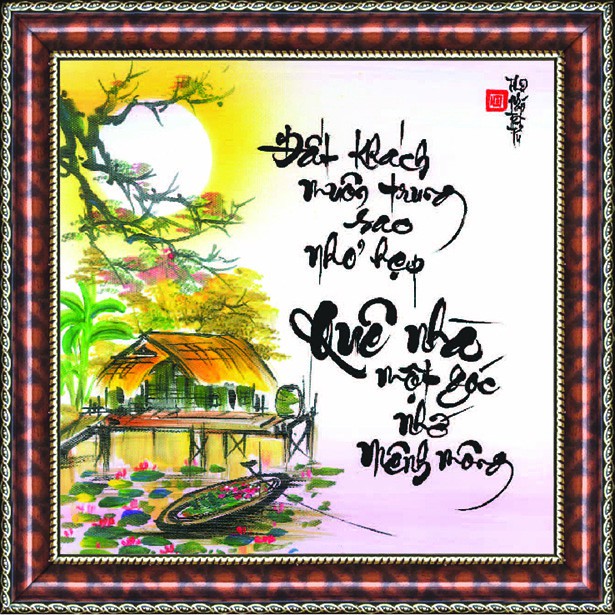 Đất khách
muôn trùng
sao
nhỏ hẹp
Quê nhà
một góc
nhớ
mênh mông